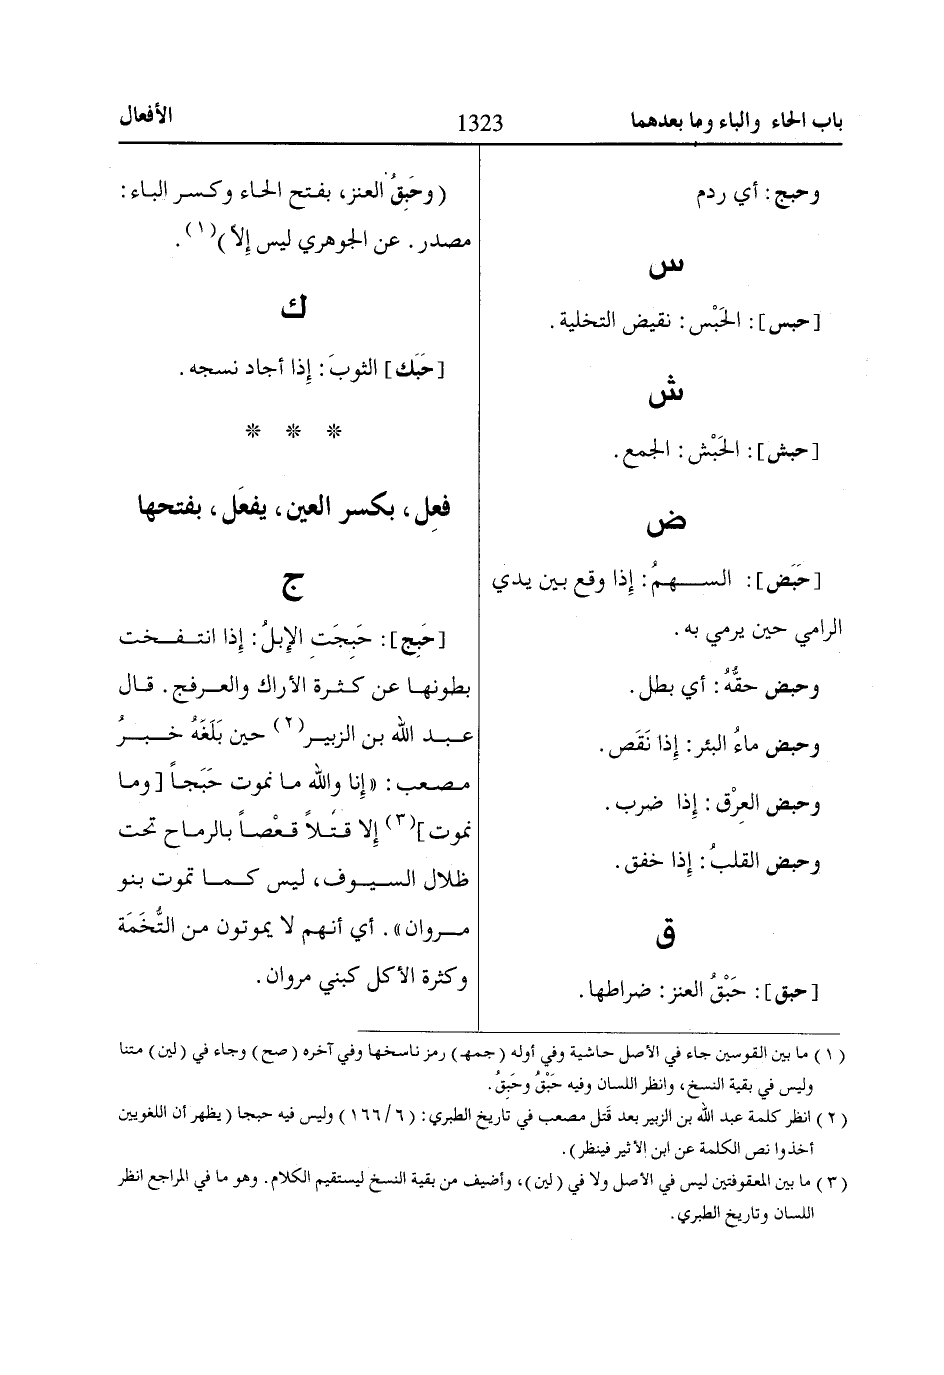 باب الحاء والباء وما بعدهما
1323
الأفعال
وحبج: أي ردم
س
[حبس]: الحَبْس: نقيض التخلية.
ش
[حبش]: الحَبْش: الجمع.
ض
[حَبَض]: السهمُ: إذا وقع بين يدي
الرامي حين يرمي به.
وحبض حقُّهُ: أي بطل.
وحبض ماءُ البئر: إذا نَقَص.
وحبض العِرْق: إذا ضرب.
وحبض القلبُ: إذا خفق.
ق
[حبق]: حَبْقُ العنز: ضراطها.
(وحَبِقُ العنز، بفتح الحاء وكسر الباء:
مصدر. عن الجوهري ليس إلاّ)(١).
ك
[حَبَك] الثوبَ: إذا أجاد نسجه.
* * *
فعِل، بكسر العين، يفعَل، بفتحها
ج
[حَبِج]: حَبِجَت الإبلُ: إذا انتفخت
بطونها عن كثرة الأراك والعرفج. قال
عبد الله بن الزبير(٢) حين بَلَغَهُ خبرُ
مصعب: «إنا والله ما نموت حَبَجاً [وما
نموت](٣) إلا قتلاً قعْصاً بالرماح تحت
ظلال السيوف، ليس كما تموت بنو
مروان». أي أنهم لا يموتون من التُّخَمَة
وكثرة الأكل كبني مروان.
(١) ما بين القوسين جاء في الأصل حاشية وفي أوله (جمهـ) رمز ناسخها وفي آخره (صح) وجاء في (لين) متنا
وليس في بقية النسخ، وانظر اللسان وفيه حَبْقُ وحَبِقُ.
(٢) انظر كلمة عبد الله بن الزبير بعد قَتل مصعب في تاريخ الطبري: (٦/١٦٦) وليس فيه حبجا (يظهر أن اللغويين
أخذوا نص الكلمة عن ابن الأثير فينظر).
(٣) ما بين المعقوفتين ليس في الأصل ولا في (لين)، وأضيف من بقية النسخ ليستقيم الكلام. وهو ما في المراجع انظر
اللسان وتاريخ الطبري.